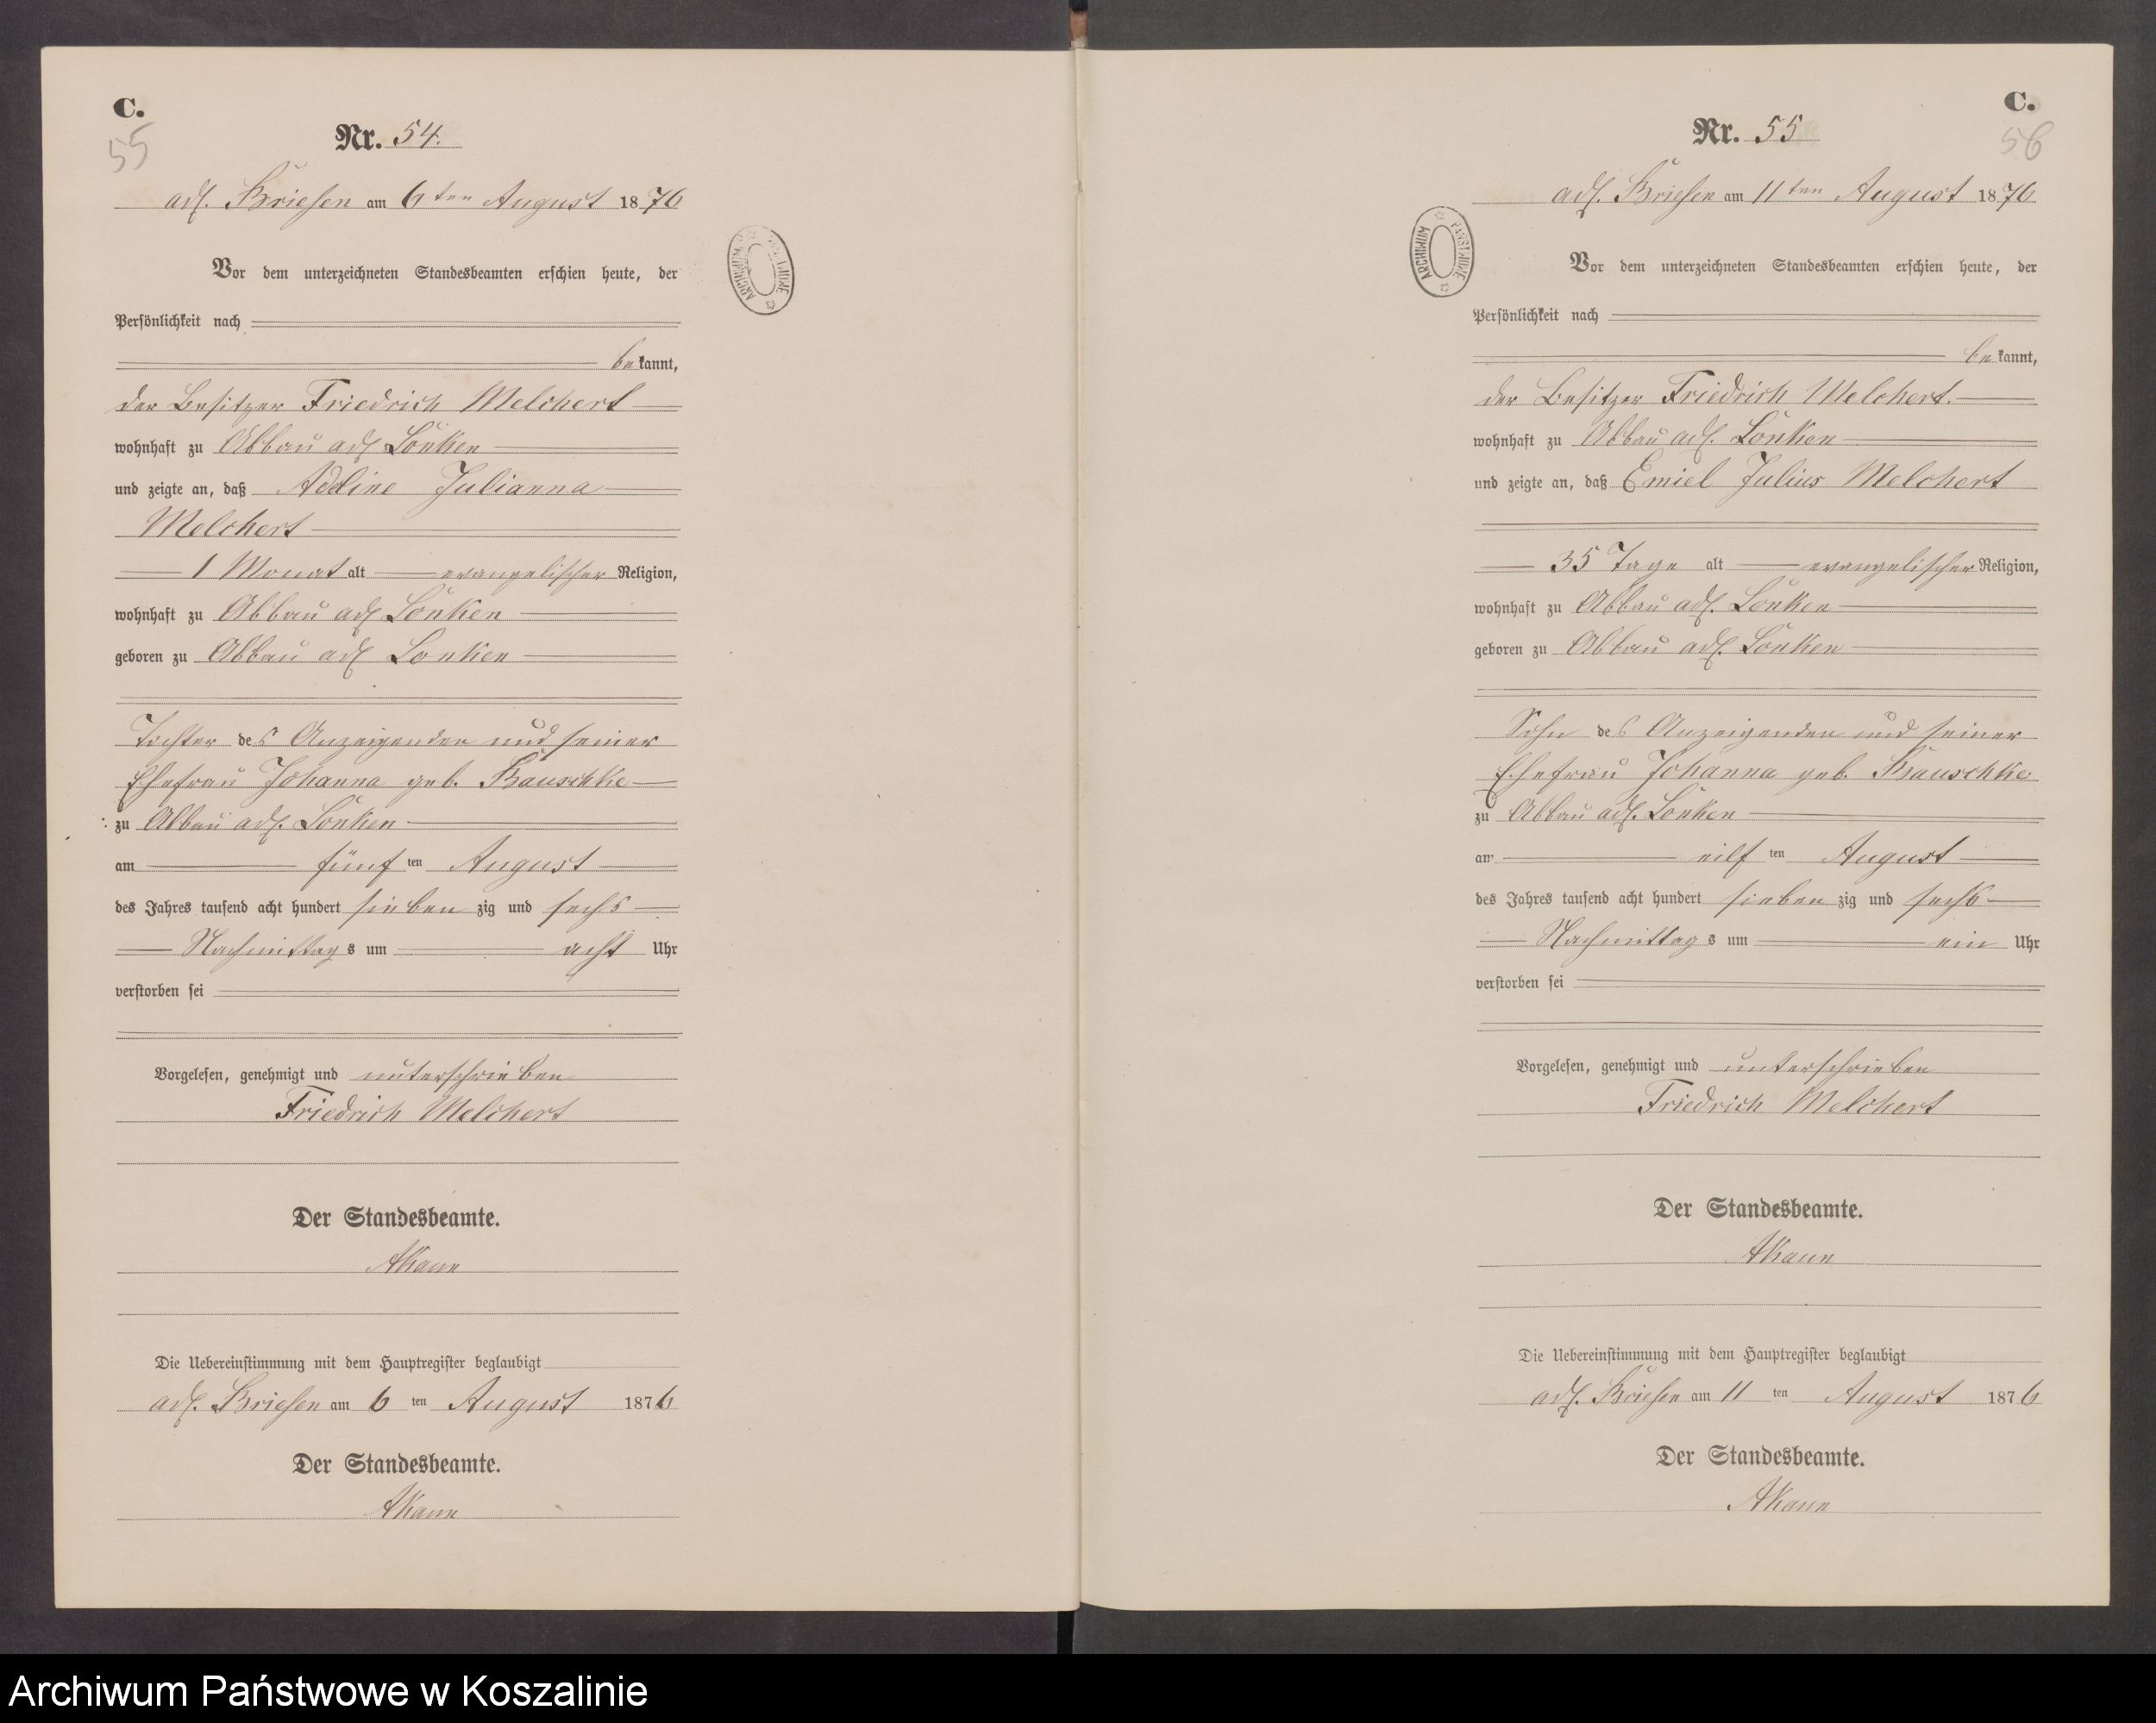 C.
55
Nr. 54.
adl. Briesen am 6ten August 1876
Vor dem unterzeichneten Standesbeamten erschien heute, der
Persönlichkeit nach
bekannt,
der Besitzer Friedrich Melchert
wohnhaft zu Abbau adl Lonken
und zeigte an, daß Adeline Julianna
Melchert
1 Monat alt evangelischer Religion,
wohnhaft zu Abbau adl Lonken
geboren zu Abbau adl Lonken
Tochter des Anzeigenden und seiner
Ehefrau Johanna geb. Bauschke
zu Abbau adl. Lonken
am fünften August
des Jahres tausend acht hundert siebenzig und sechs
Nachmittags um acht Uhr
verstorben sei
Vorgelesen, genehmigt und unterschrieben
Friedrich Melchert
Der Standesbeamte.
AKann
Die Uebereinstimmung mit dem Hauptregister beglaubigt
adl. Briesen am 6ten August 1876
Der Standesbeamte.
AKann
ARCHIWUM
C.
56
Nr. 55
adl. Briesen am 11ten August 1876
ARCHIWUM PAŃSTWOWE
Vor dem unterzeichneten Standesbeamten erschien heute, der
Persönlichkeit nach
bekannt,
der Besitzer Friedrich Melchert.
wohnhaft zu Abbau adl. Lonken
und zeigte an, daß Emiel Julius Melchert
35 Tage alt evangelischer Religion,
wohnhaft zu Abbau adl. Lonken
geboren zu Abbau adl. Lonken
Sohn des Anzeigenden und seiner
Ehefrau Johanna geb. Bauschke
zu Abbau adl. Lonken
am eilften August
des Jahres tausend acht hundert siebenzig und sechs
Nachmittags um ein Uhr
verstorben sei
Vorgelesen, genehmigt und unterschrieben
Friedrich Melchert
Der Standesbeamte.
AKann
Die Uebereinstimmung mit dem Hauptregister beglaubigt
adl. Briesen am 11ten August 1876
Der Standesbeamte.
AKann
Archiwum Państwowe w Koszalinie